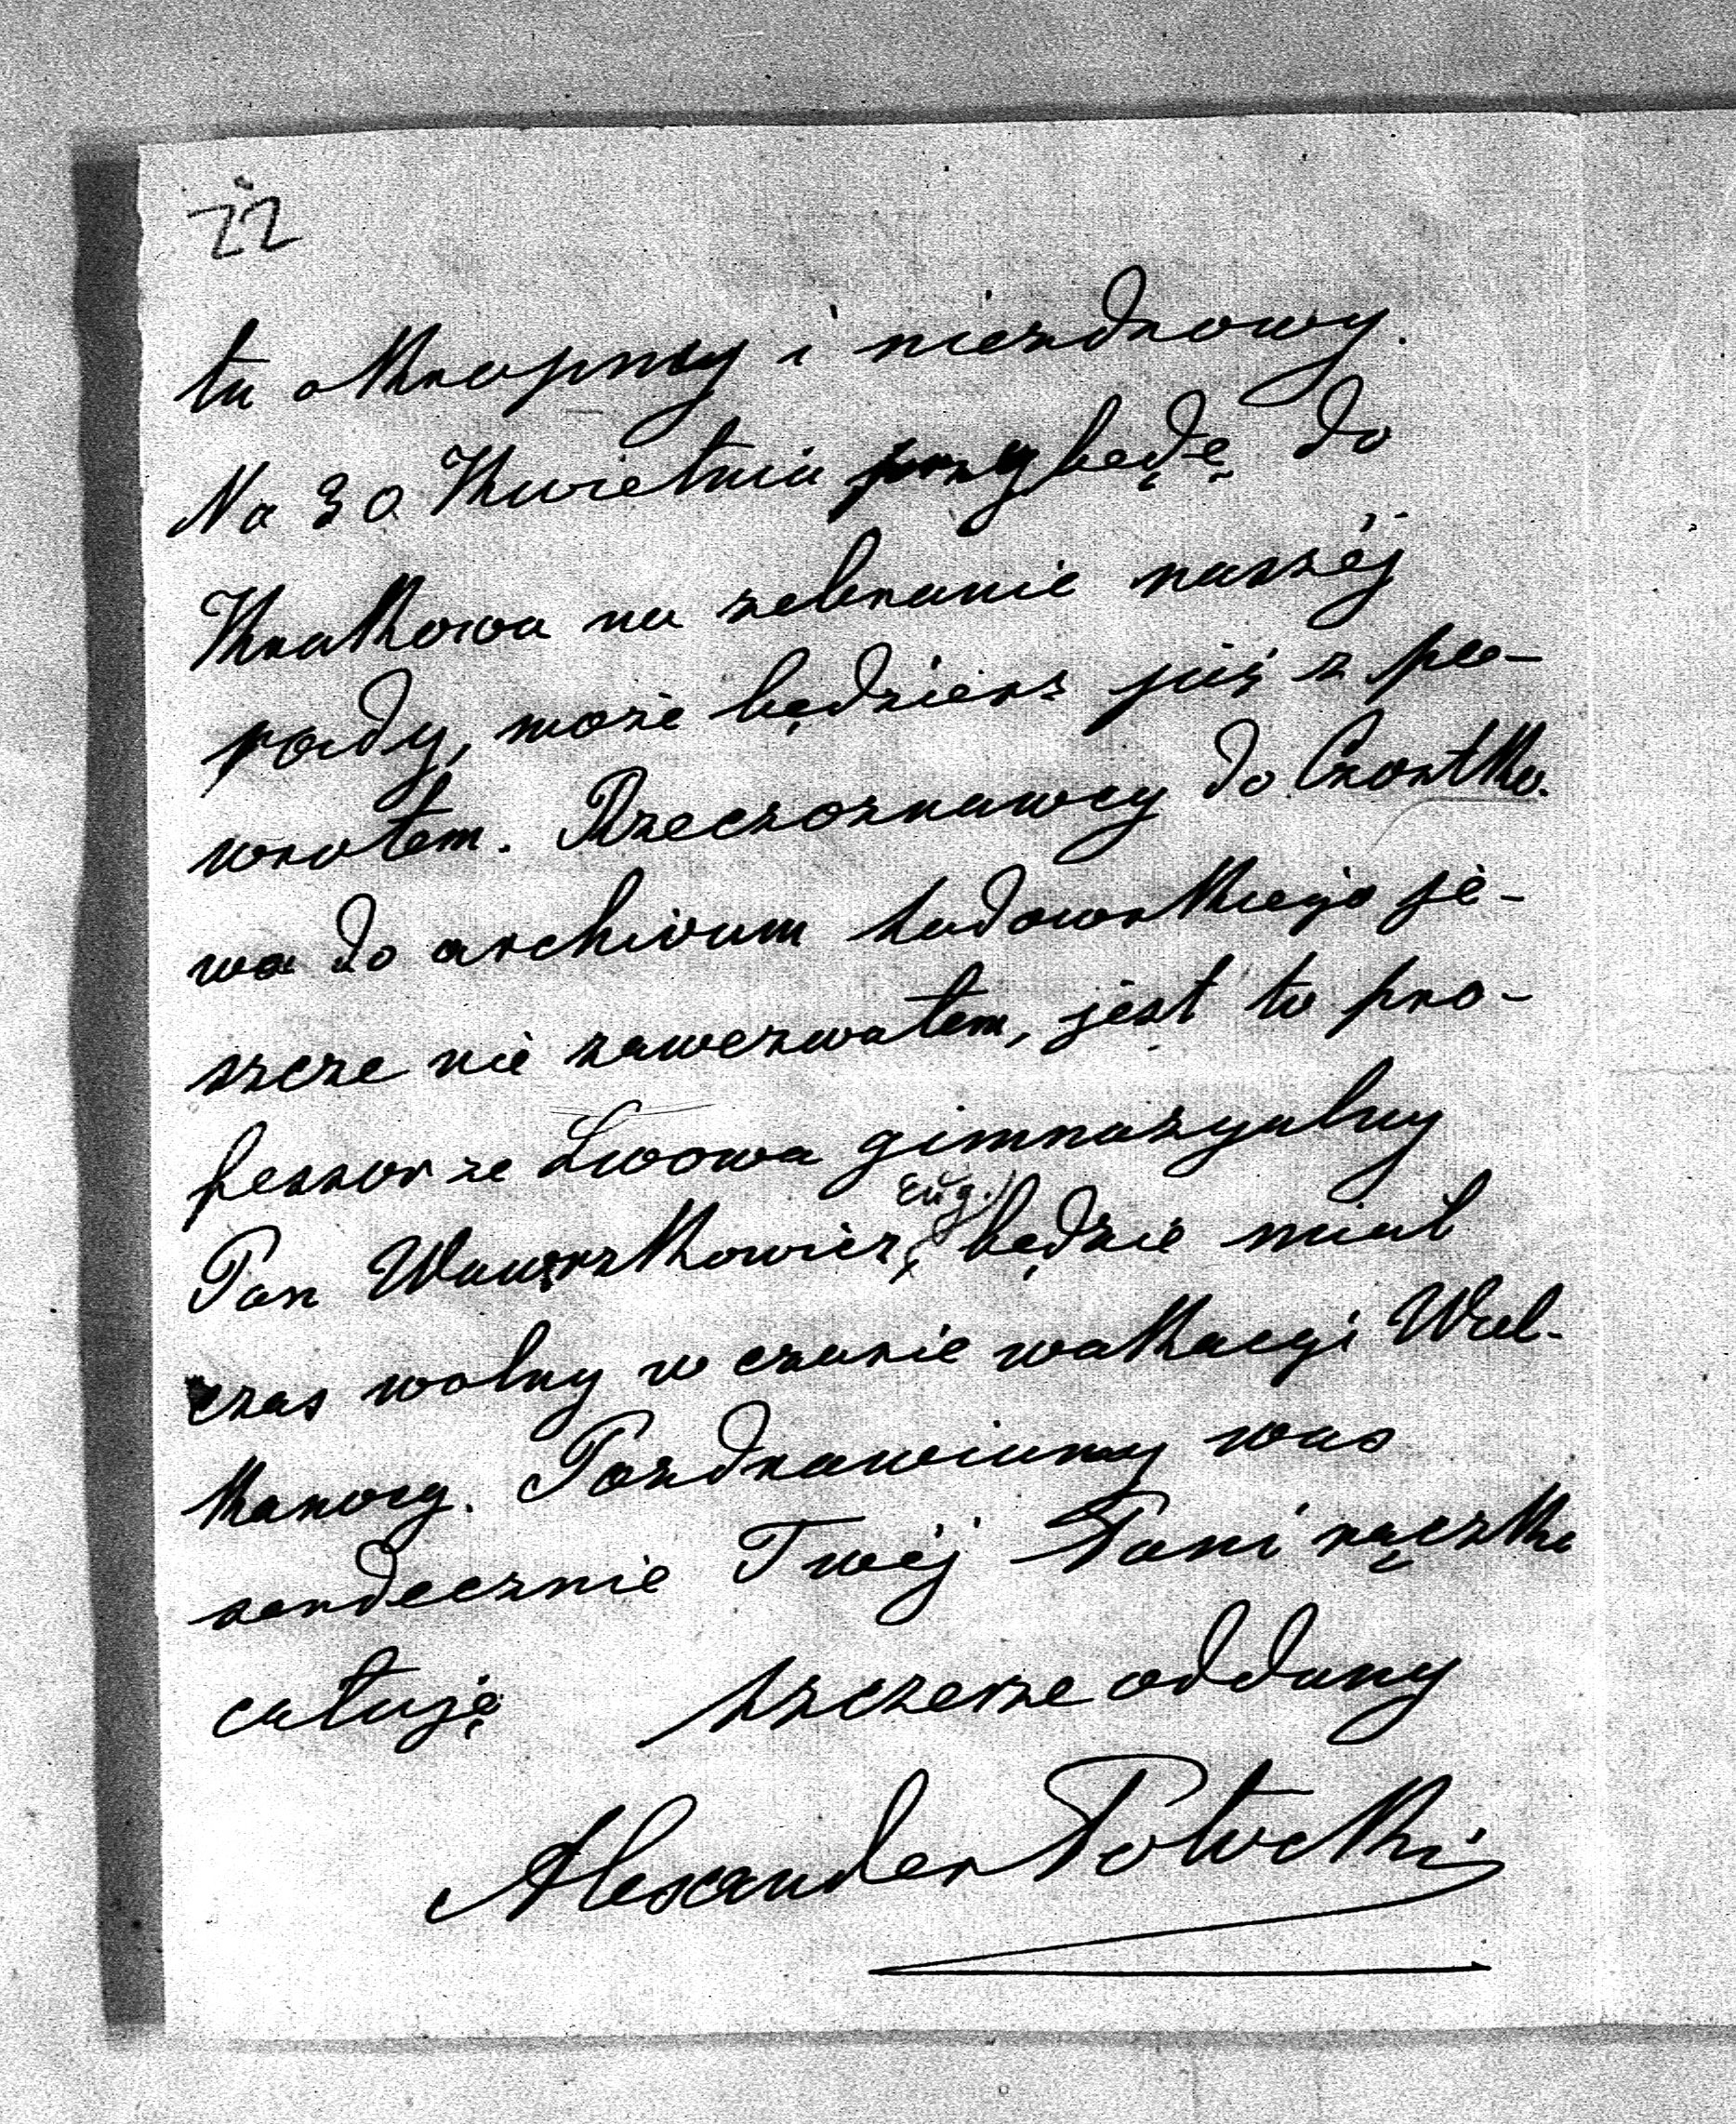 22
tu okropny i niezdrowy.
Na 30 Kwietnia przybędę do
Krakowa na zebranie naszéj
rady, może będziesz już z po-
wrotem. Rzeczoznawcy do Czortko-
wa do archivum Sadowskiego je-
szcze nie zawezwałem, jest to pro-
fessor ze Lwowa gimnazyalny
Eug.
Pan Wawrzkowicz, będzie miał
czas wolny w czasie wakacyi Wiel-
kanocy. Pozdrawiamy was
serdecznie Twéj Pani rączki
całuję szczerze oddany
Alexander Potocki